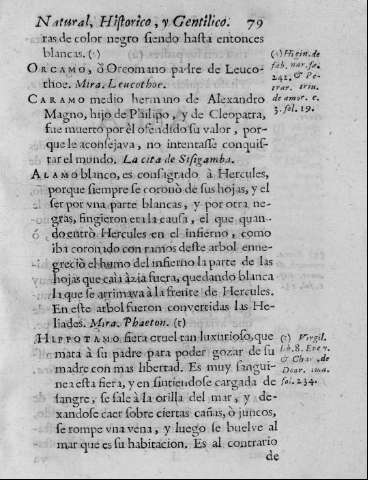 Natural, Historico, y Gentilico. 79
ras de color negro siendo hasta entonces
blancas. (s)
ORCAMO, ò Orcomano padre de Leuco-
thoe. Mira. Leucothoe.
CARAMO medio hermano de Alexandro
Magno, hijo de Philipo, y de Cleopatra,
fue muerto por èl ofendido su valor, por-
que le aconsejava, no intentasse conquis-
tar el mundo. La cita de Sisigamba.
ALAMO blanco, es consagrado à Hercules,
porque siempre se coronò de sus hojas, y el
ser por vna parte blancas, y por otra ne-
gras, fingieron era la causa, el que quan-
do entrò Hercules en el infierno, como
iba coronado con ramos deste arbol enne-
greciò el humo del infierno la parte de las
hojas que caìa àzia fuera, quedando blanca
la que se arrimava à la frente de Hercules.
En este arbol fueron convertidas las He-
liades. Mira. Phaeton. (t)
HIPPOTAMO fiera cruel tan luxurioso, que
mata à su padre para poder gozar de su
madre con mas libertad. Es muy sangui-
nea esta fiera, y en sintiendose cargada de
sangre, se sale à la orilla del mar, y de-
xandose caer sobre ciertas cañas, ò juncos,
se rompe vna vena, y luego se buelve al
mar que es su habitacion. Es al contrario
de
(s) Higin. de
fab. nar. fa.
241. & Pe-
trar. triu.
de amor. c.
3. fol. 19.
(t) Virgil.
lib. 8. Even.
& Char. de
Deor. ima.
fol. 234.